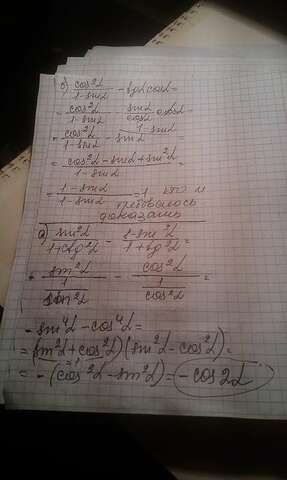 б) cos²α / 1-sinα - tgα cosα =
= cos²α / 1-sinα - sinα / cosα · cosα =
= cos²α / 1-sinα - sinα =
= cos²α - sinα + sin²α / 1-sinα =
= 1-sinα / 1-sinα = 1 что и
требовалось
доказать
а) sin²α / 1+ctg²α - 1-sin²α / 1+tg²α =
= sin²α / 1/sin²α - cos²α / 1/cos²α =
= sin⁴α - cos⁴α =
= (sin²α + cos²α)(sin²α - cos²α) =
= -(cos²α - sin²α) = -cos2α